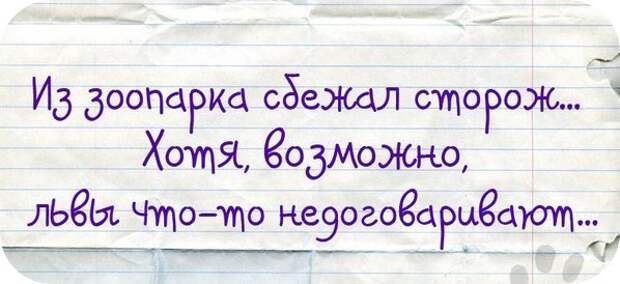 Из зоопарка сбежал сторож...
Хотя, возможно,
львы что-то недоговаривают...